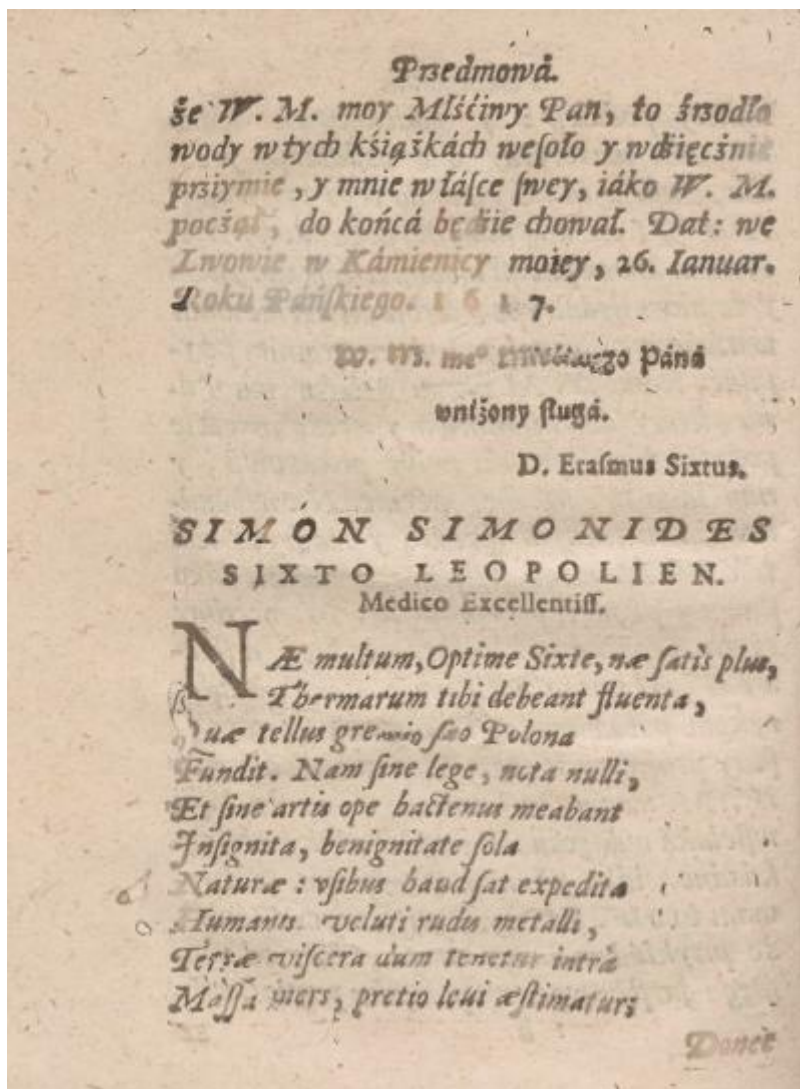 Przedmowá.
że W. M. moy Mlśćiwy Pan, to źrzodło
wody w tych kśiążkách weſoło y wdźięcżnie
prziymie, y mnie w łáſce ſwey, iáko W. M.
pocżął, do końcá będźie chował. Dat: we
Lwowie w Kámienicy moiey, 26. Ianuar.
Roku Páńſkiego. 1617.
W. M. meº Páná
vniżony ſługá.
D. Eraſmus Sixtus.
SIMON SIMONIDES
SIXTO LEOPOLIEN.
Medico Excellentiſſ.
NÆ multum, Optime Sixte, næ ſatis plus,
Thermarum tibi debeant fluenta,
Quæ tellus gremio ſuo Polona
Fundit. Nam ſine lege, nota nulli,
Et ſine artis ope hactenus meabant
Inſignita, benignitate ſola
Naturæ: vſibus haud ſat expedita
Humanis. veluti rudis metalli,
Terræ viſcera dum tenetur intrà
Maſſa iners, pretio leui æſtimatur;
Donec